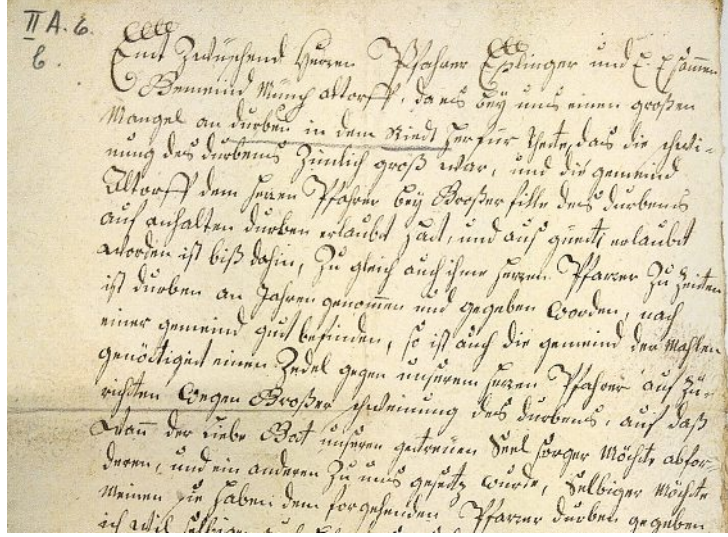 II A. 6.
6.
Emt Zwüschend Herren Pfahrer Eßlinger und E. Ehsammen
Gemeind Münch altorff, da es bey uns einen großen
Mangel an durben in dem Riedt herfür thete, das die schwi-
nung des durbens Zimlich groß war, und die gemeind
Altorff dem herren Pfahrer bey Großer fülle des durbens
auf anhalten durben erlaubt hat, und auß guete erlaubt
worden ist biß dahin, Zu gleich auch ihme herren Pfarrer Zu Zeiten
ist durben an Jahren genommen und gegeben worden, nach
einer gemeind gut befinden, so ist auch die gemeind der mahlen
genöthiget einen Zedel gegen unserem herren Pfahrer auf Zu-
richten wegen Großer schweinung des durbens, auf daß
Wann der Liebe Got unseren getreuen Seel sorger Möchte abfor-
deren, und ein anderen Zu uns gesetz wurde, Selbiger Möchte
Meinen sie haben dem forgehenden Pfarrer durben gegeben
ich wil selbigen